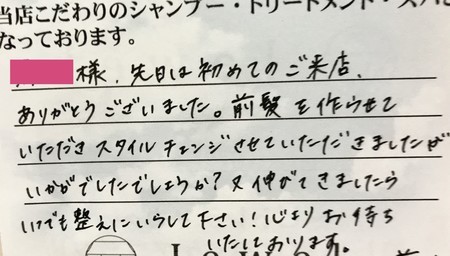 当店こだわりのシャンプー・トリートメント・スパ
なっております。
様、先日は初めてのご来店、
ありがとうございました。前髪を作らせて
いただきスタイルチェンジさせていただきましたが
いかがでしたでしょうか?又伸びてきましたら
いつでも整えにいらして下さい!心よりお待ち
いたしております。